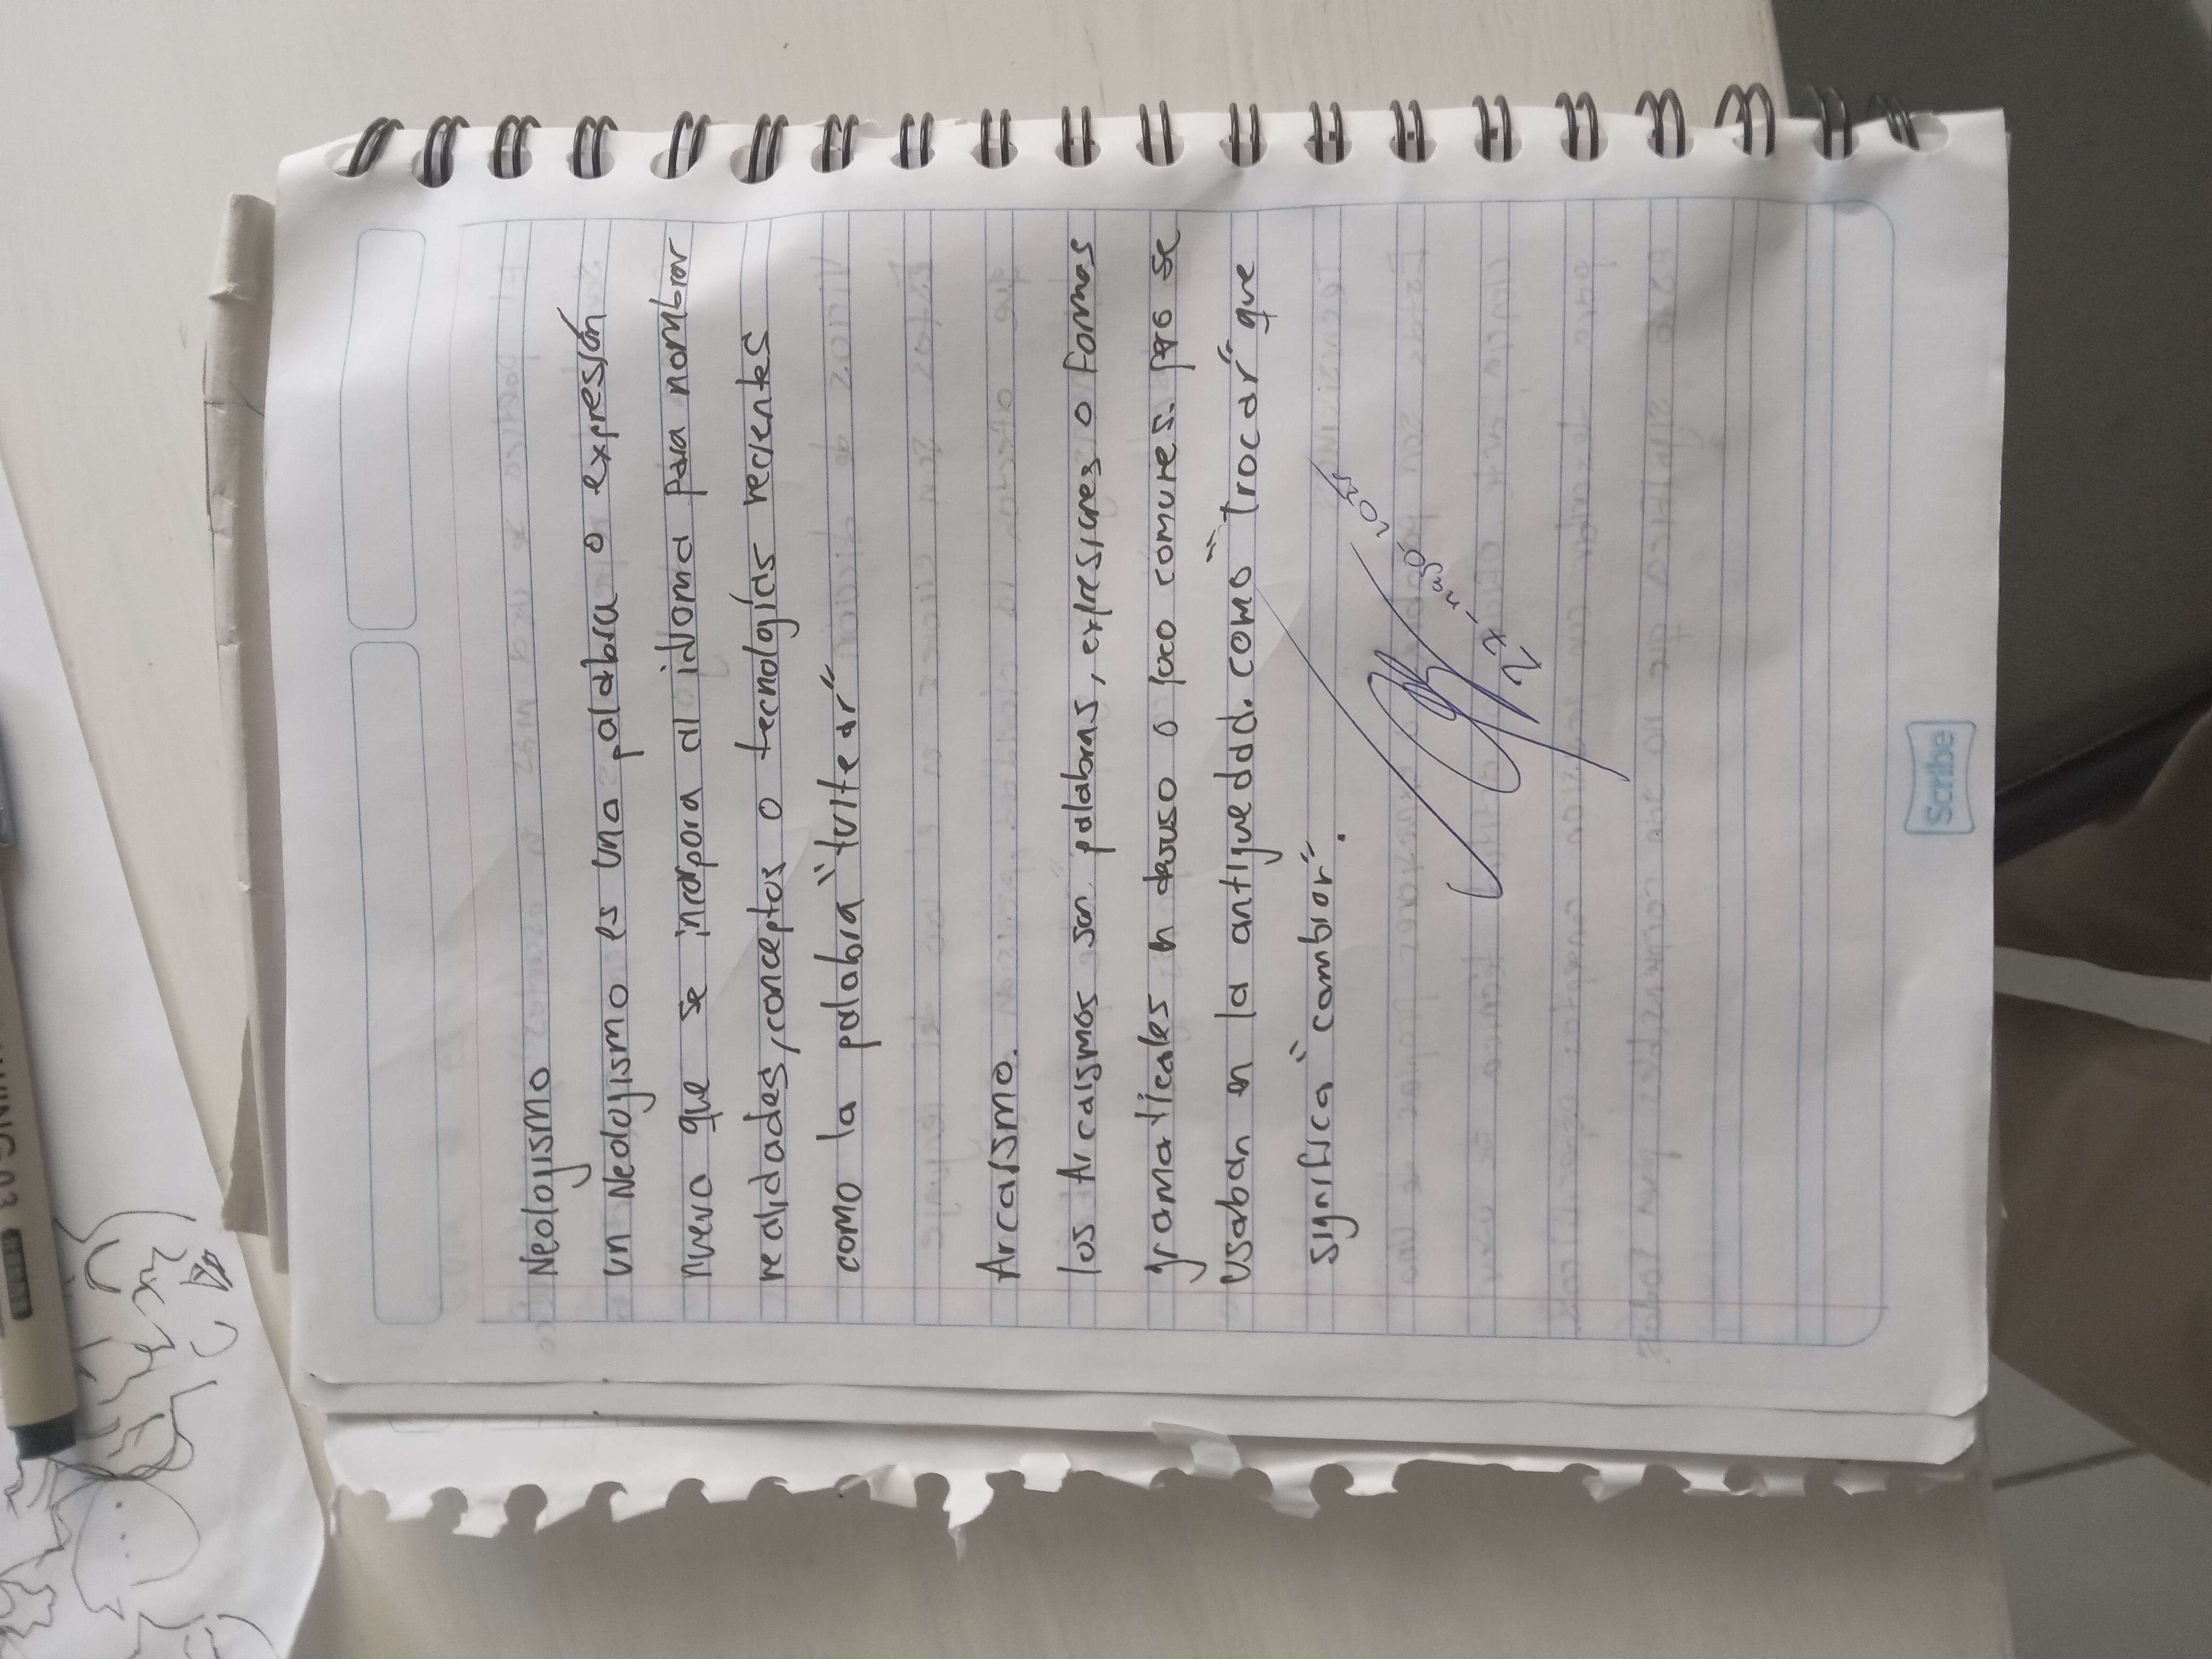 Neologismo
un Neologismo es una palabra o expresión
nueva que se incorpora al idioma para nombrar
realidades, conceptos o tecnologías recientes
como la palabra "tuitear"
Arcaismo.
los Arcaismos son palabras, expresiones o formas
gramaticales n desuso o poco comunes. pero se
usaban en la antiguedad. como "trocar" que
significa "cambiar".
Scribe